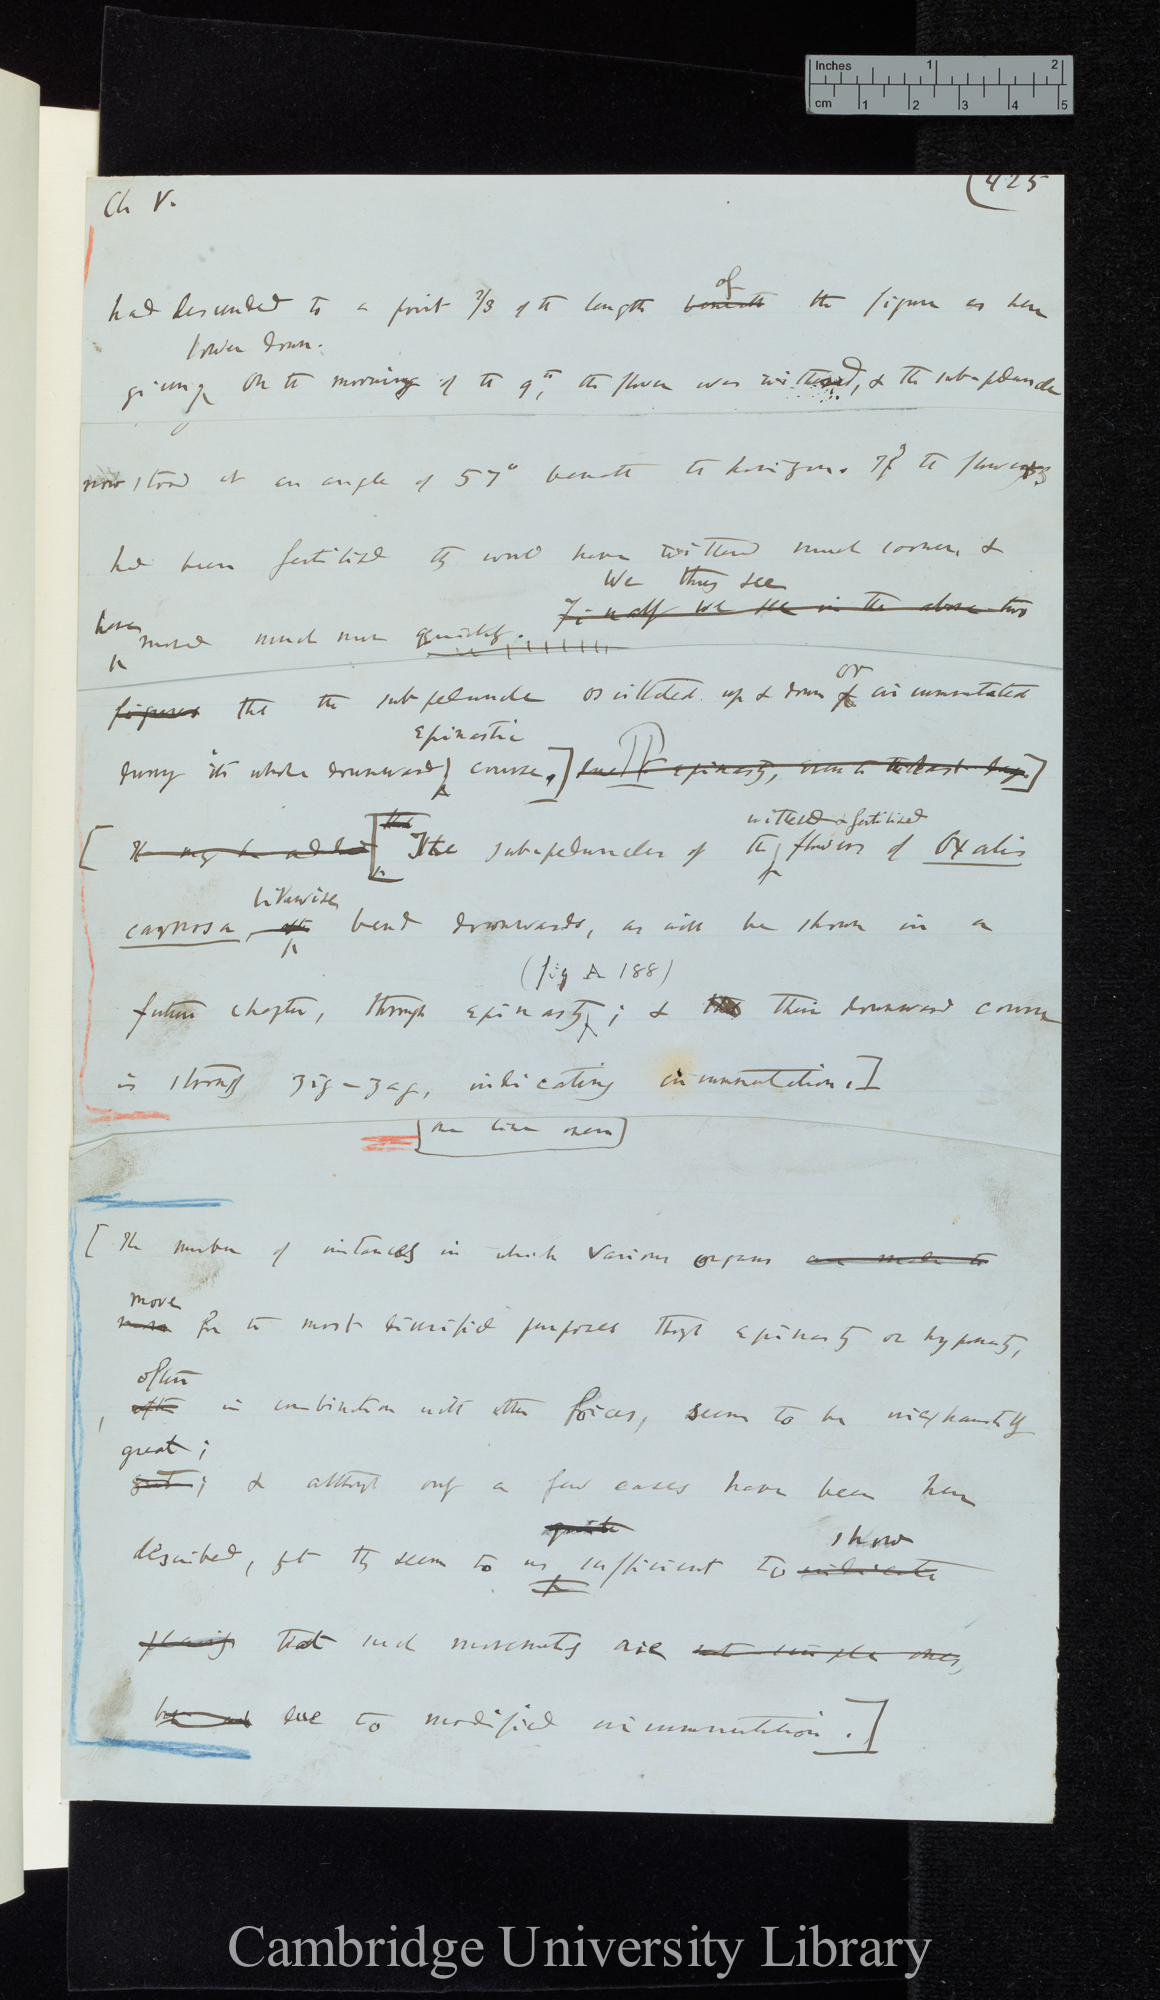 Inches 1 2
cm 1 2 3 4 5
Ch V.
(425
of
had descended to a point 2/3 of the length beneath the figure as here
lower down.
given, On the morning of the 9th, the flower was withered, & the sub-peduncle
now stood at an angle of 57° beneath the horizon. If the flowers
had been fertilised they would have withered much sooner, &
We thus see
have moved much more quickly. Finally we see in the above two
or
figures that the sub-peduncle oscillated up & down & circumnutated
epinastic
during its whole downward course,] due to epinasty, even to the last day.]
withered & fertilised
[It may be added [the The sub-peduncles of the flowers of Oxalis
likewise
carnosa, bend downwards, as will be shown in a
(fig A 188)
future chapter, through epinasty; & their downward course
is strongly zig-zag, indicating circumnutation.]
[one line open]
[The number of instances in which various organs are made to
move
move for the most diversified purposes through epinasty or hyponasty,
often
, often in combination with other forces, seem to be inexhaustibly
great;
great; & although only a few cases have been here
quite
show
described, yet they seem to us sufficient to indicate
plainly that such movements are not simple ones,
but are due to modified circumnutation.]
Cambridge University Library